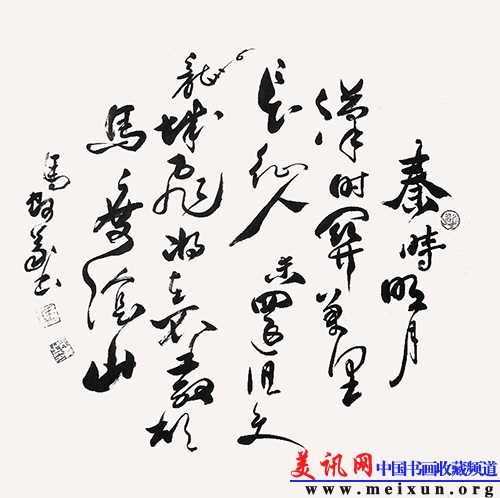 秦時明月
漢时關萬里
長征人未還但使
龍城飛將在不教胡
馬度陰山
馬书
美讯网 中国书画收藏频道
www.meixun.org